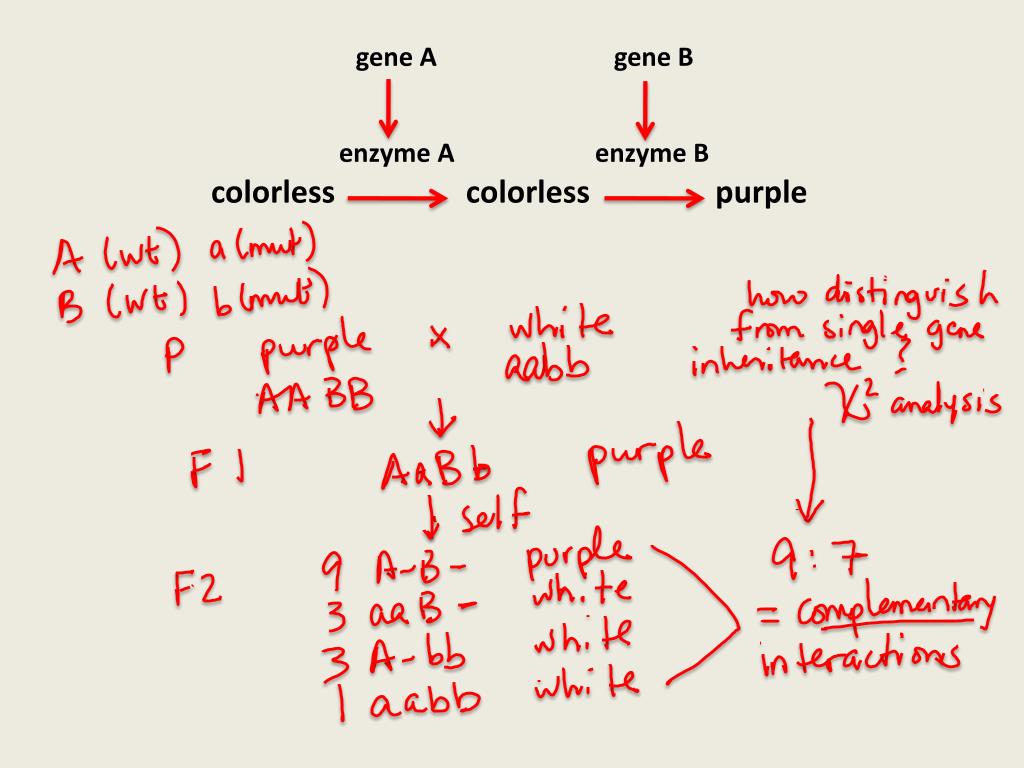 gene A gene B
enzyme A enzyme B
colorless colorless purple
A (wt) a (mut)
B (wt) b (mut)
how distinguish
from single gene
inheritance ?
χ² analysis
P purple x white
AABB aabb
F1 AaBb purple
self
F2 9 A-B- purple
3 aaB- white
3 A-bb white
1 aabb white
9:7
= complementary
interactions